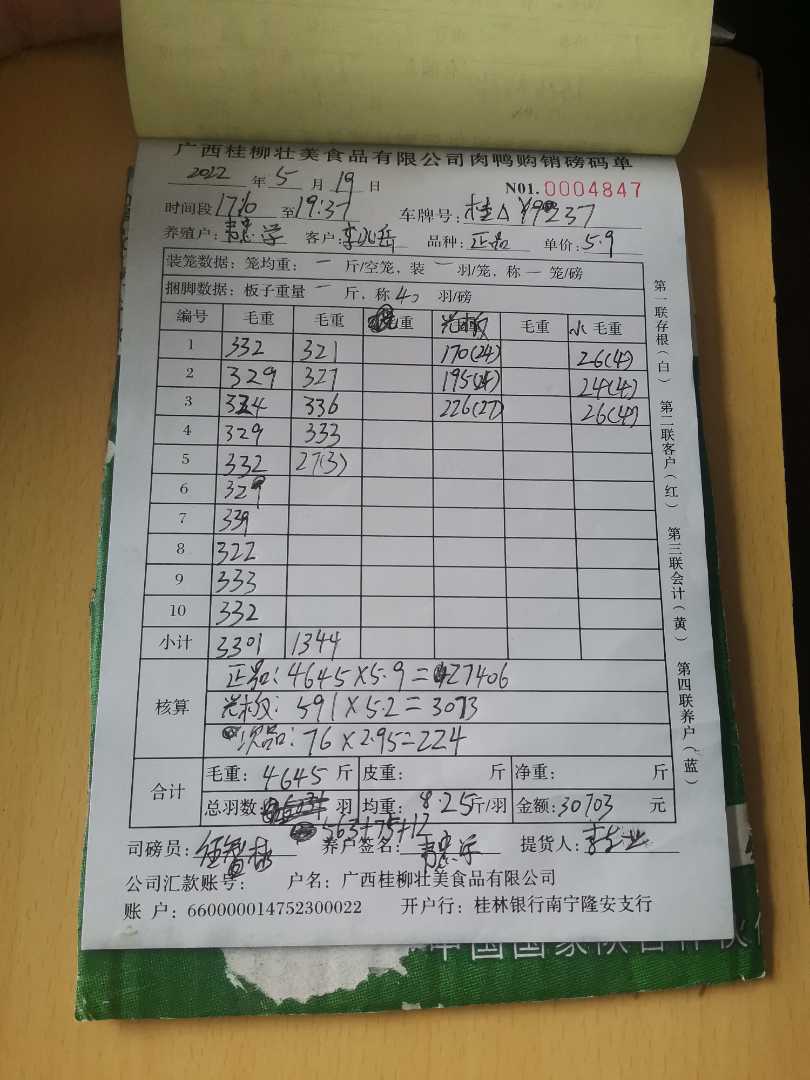 广西桂柳壮美食品有限公司肉鸭购销磅码单
2022 年 5 月 19 日 N01. 0004847
时间段 至 19:37 车牌号: 桂A
养殖户: 韦忠学 客户: 品种: 正品 单价: 5.9
装笼数据: 笼均重: 一 斤/空笼, 装 一 羽/笼, 称 一 笼/磅
捆脚数据: 板子重量 一 斤, 称 羽/磅
编号 毛重 毛重 毛重 毛重 小 毛重
1 332 321 170(24) 26(4)
2 329 327 195 24(4)
3 334 336 226(27) 26(4)
4 329 333
5 332 27(3)
6 329
7 339
8 322
9 333
10 332
小计 3301 1344
核算 正品: 4645×5.9=27406
591×5.2=3073
次品: 76×2.95=224
合计 毛重: 4645 斤 皮重: 斤 净重: 斤
总羽数 羽 均重: 8.25 斤/羽 金额: 30703 元
563+75+12
司磅员: 养户签名: 韦忠学 提货人:
公司汇款账号: 户名: 广西桂柳壮美食品有限公司
账 户: 660000014752300022 开户行: 桂林银行南宁隆安支行
第一联存根(白) 第二联客户(红) 第三联会计(黄) 第四联养户(蓝)
中国国家队合作伙伴